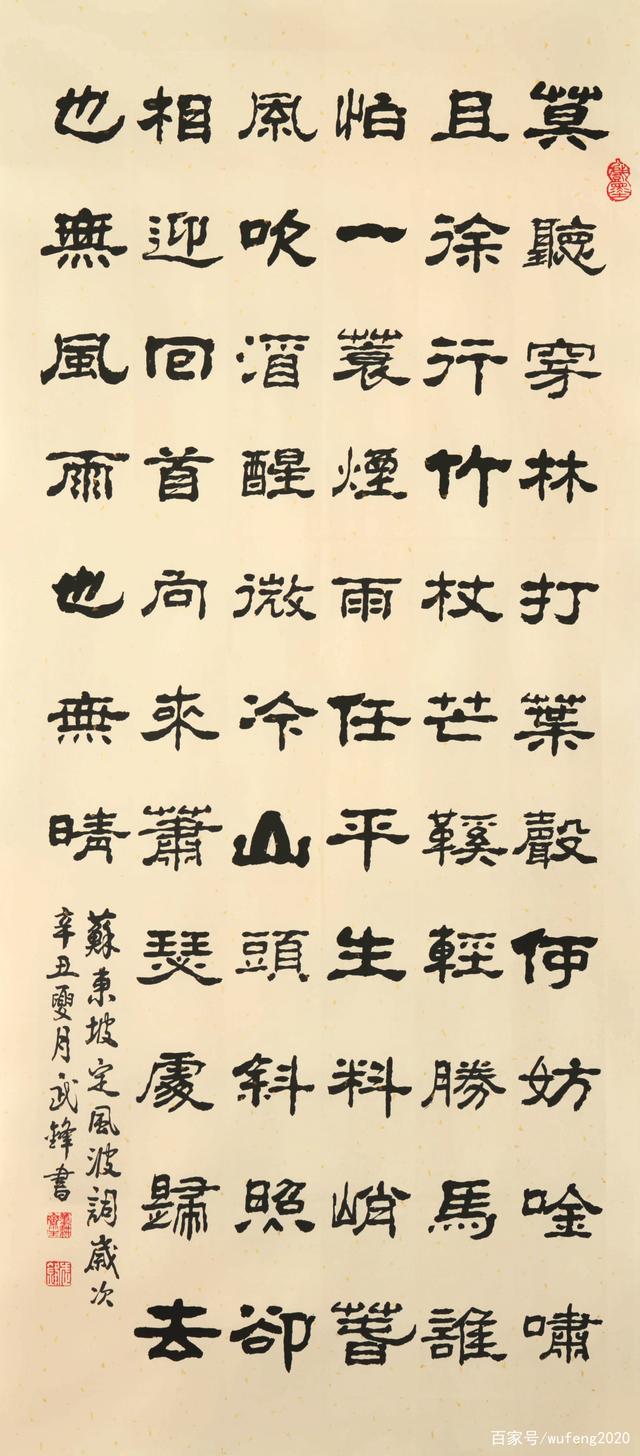 莫聽穿林打葉聲何妨唫嘯
且徐行竹杖芒鞵輕勝馬誰
怕一蓑煙雨任平生料峭萅
風吹酒醒微冷山頭斜照卻
相迎回首向來蕭瑟處歸去
也無風雨也無晴
蘇東坡定風波詞歲次
辛丑夏月武鋒書
百家号/wufeng2020